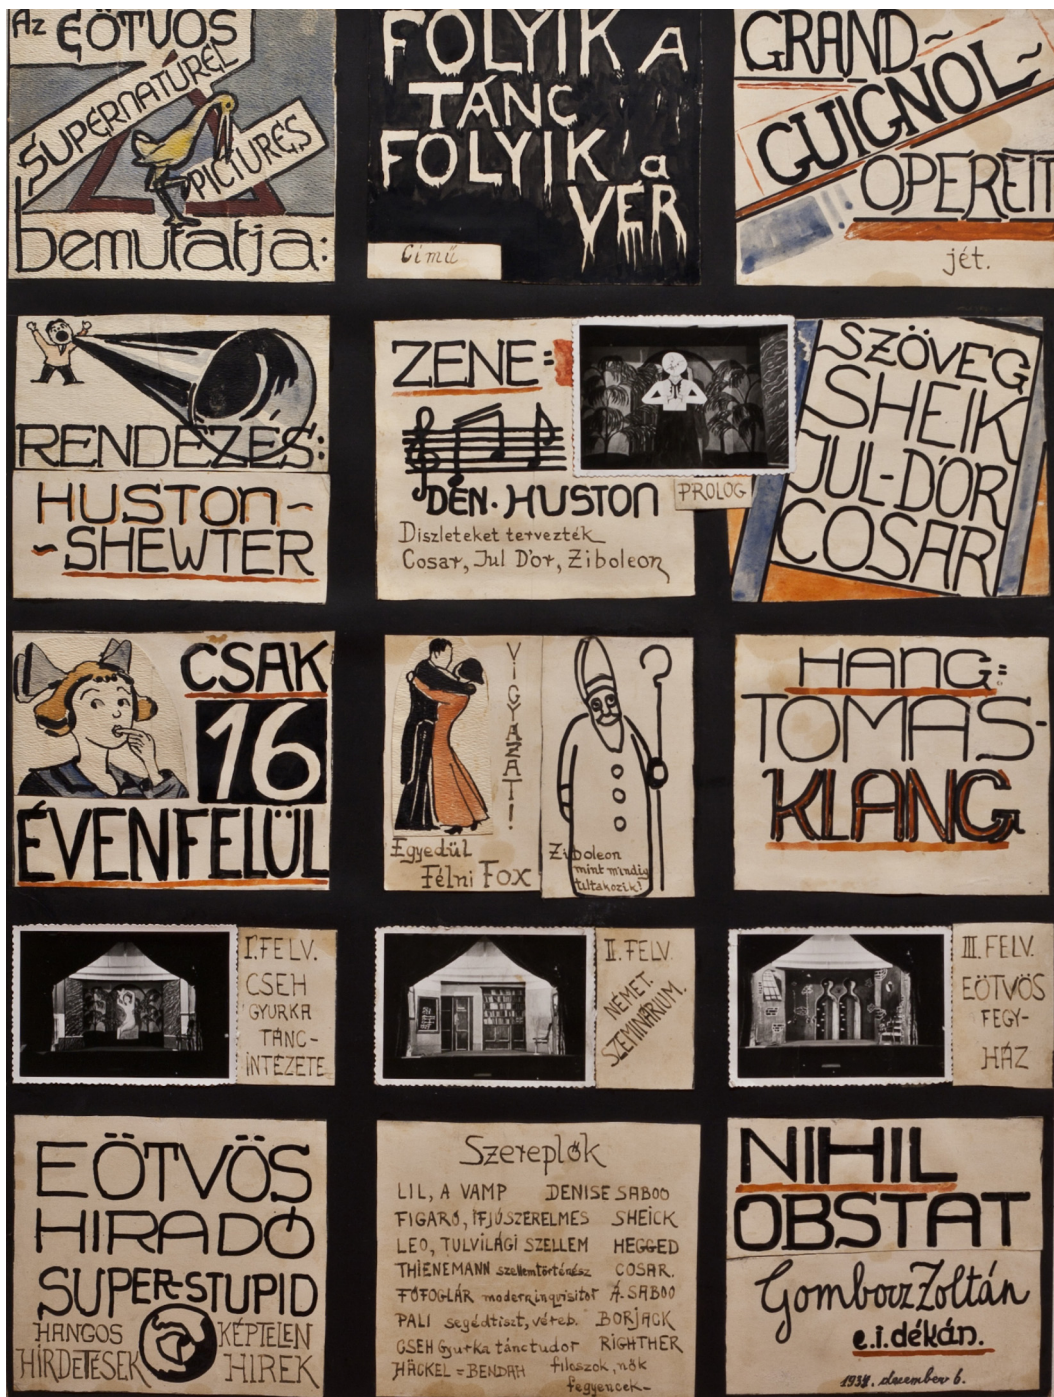 Az EÖTVÖS
SUPERNATUREL
PICTURES
bemutatja:
FOLYIK A
TÁNC
FOLYIK a
VÉR
Című
GRAND-
GUIGNOL-
OPERETT
jét.
RENDEZÉS:
HUSTON-
-SHEWTER
ZENE:
DEN. HUSTON
Díszleteket tervezték
Cosar, Jul D'or, Ziboleon
PROLOG
SZÖVEG
SHEIK
JUL-D'OR
COSAR
CSAK
16
ÉVENFELÜL
VIGYÁZAT!
Egyedül
Félni Fox
Ziboleon
mint mindig
tiltakozik!
HANG:
TOMAS-
KLANG
I. FELV.
CSEH
GYURKA
TÁNC-
INTÉZETE
II. FELV.
NÉMET.
SZEMINÁRIUM.
III. FELV.
EÖTVÖS
FEGY-
HÁZ
EÖTVÖS
HIRADÓ
SUPER-STUPID
HANGOS KÉPTELEN
HIRDETÉSEK HIREK
Szereplők
LIL, A VAMP DENISE SABOO
FIGARÓ, IFJÚSZERELMES SHEICK
LEO, TULVILÁGI SZELLEM HEGGED
THIENEMANN szellemtörténész COSAR.
FŐFOGLÁR modern inqvisitor Á. SABOO
PALI segédtiszt, véreb. BORJACK
CSEH Gyurka tánctudor RIGHTHER
HÄCKEL = BENDAH filoszok, nők
fegyencek-
NIHIL
OBSTAT
Gombocz Zoltán
e.i. dékán.
1934. december 6.